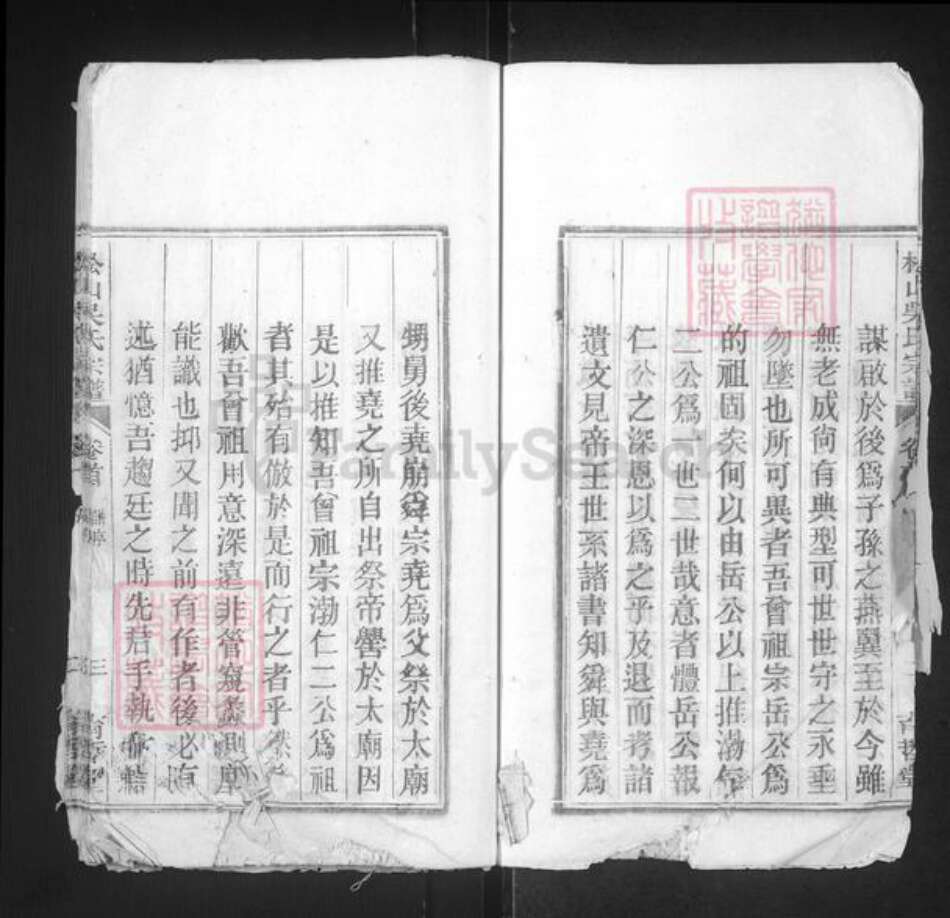 謀啟於後爲子孫之燕翼至於今雖
無老成尙有典型可世世守之永垂
勿墜也所可異者吾曾祖宗岳公爲
的祖固矣何以由岳公以上推渤
二公爲一世二世哉意者體岳公報
仁公之深恩以爲之乎及退而考諸
遺文見帝王世系諸書知舜與堯爲
甥舅後堯崩舜宗堯爲父祭於太廟
又推堯之所自出祭帝嚳於太廟因
是以推知吾曾祖宗渤仁二公爲祖
者其殆有倣於是而行之者乎
歟吾曾祖用意深遠非管窺蠡測
能識也抑又聞之前有作者後必有
述猶憶吾趨廷之時先君手執
松山吳氏宗譜
卷首
三
松山吳氏宗譜
FamilySearch
譜學會
收藏